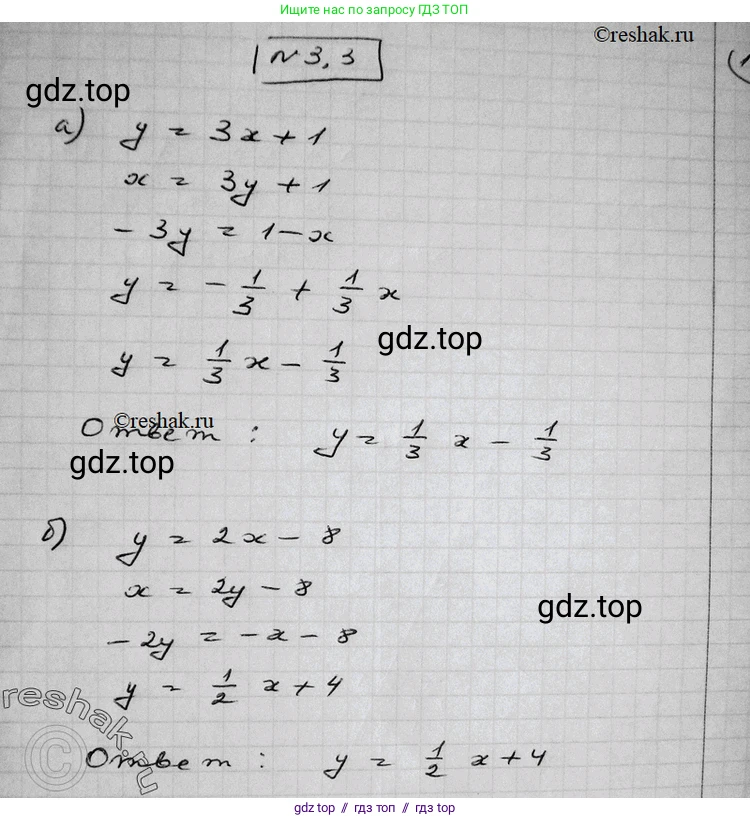 Ищите нас по запросу ГДЗ ТОП
©reshak.ru
№3,3
(1
gdz.top
а) y = 3x + 1
x = 3y + 1
- 3y = 1 - x
y = - 1/3 + 1/3 x
gdz.top
y = 1/3 x - 1/3
©reshak.ru
Ответ : y = 1/3 x - 1/3
gdz.top
б) y = 2x - 8
x = 2y - 8
gdz.top
- 2y = - x - 8
y = 1/2 x + 4
reshak.ru
©
Ответ : y = 1/2 x + 4
gdz.top // гдз топ // gdz top